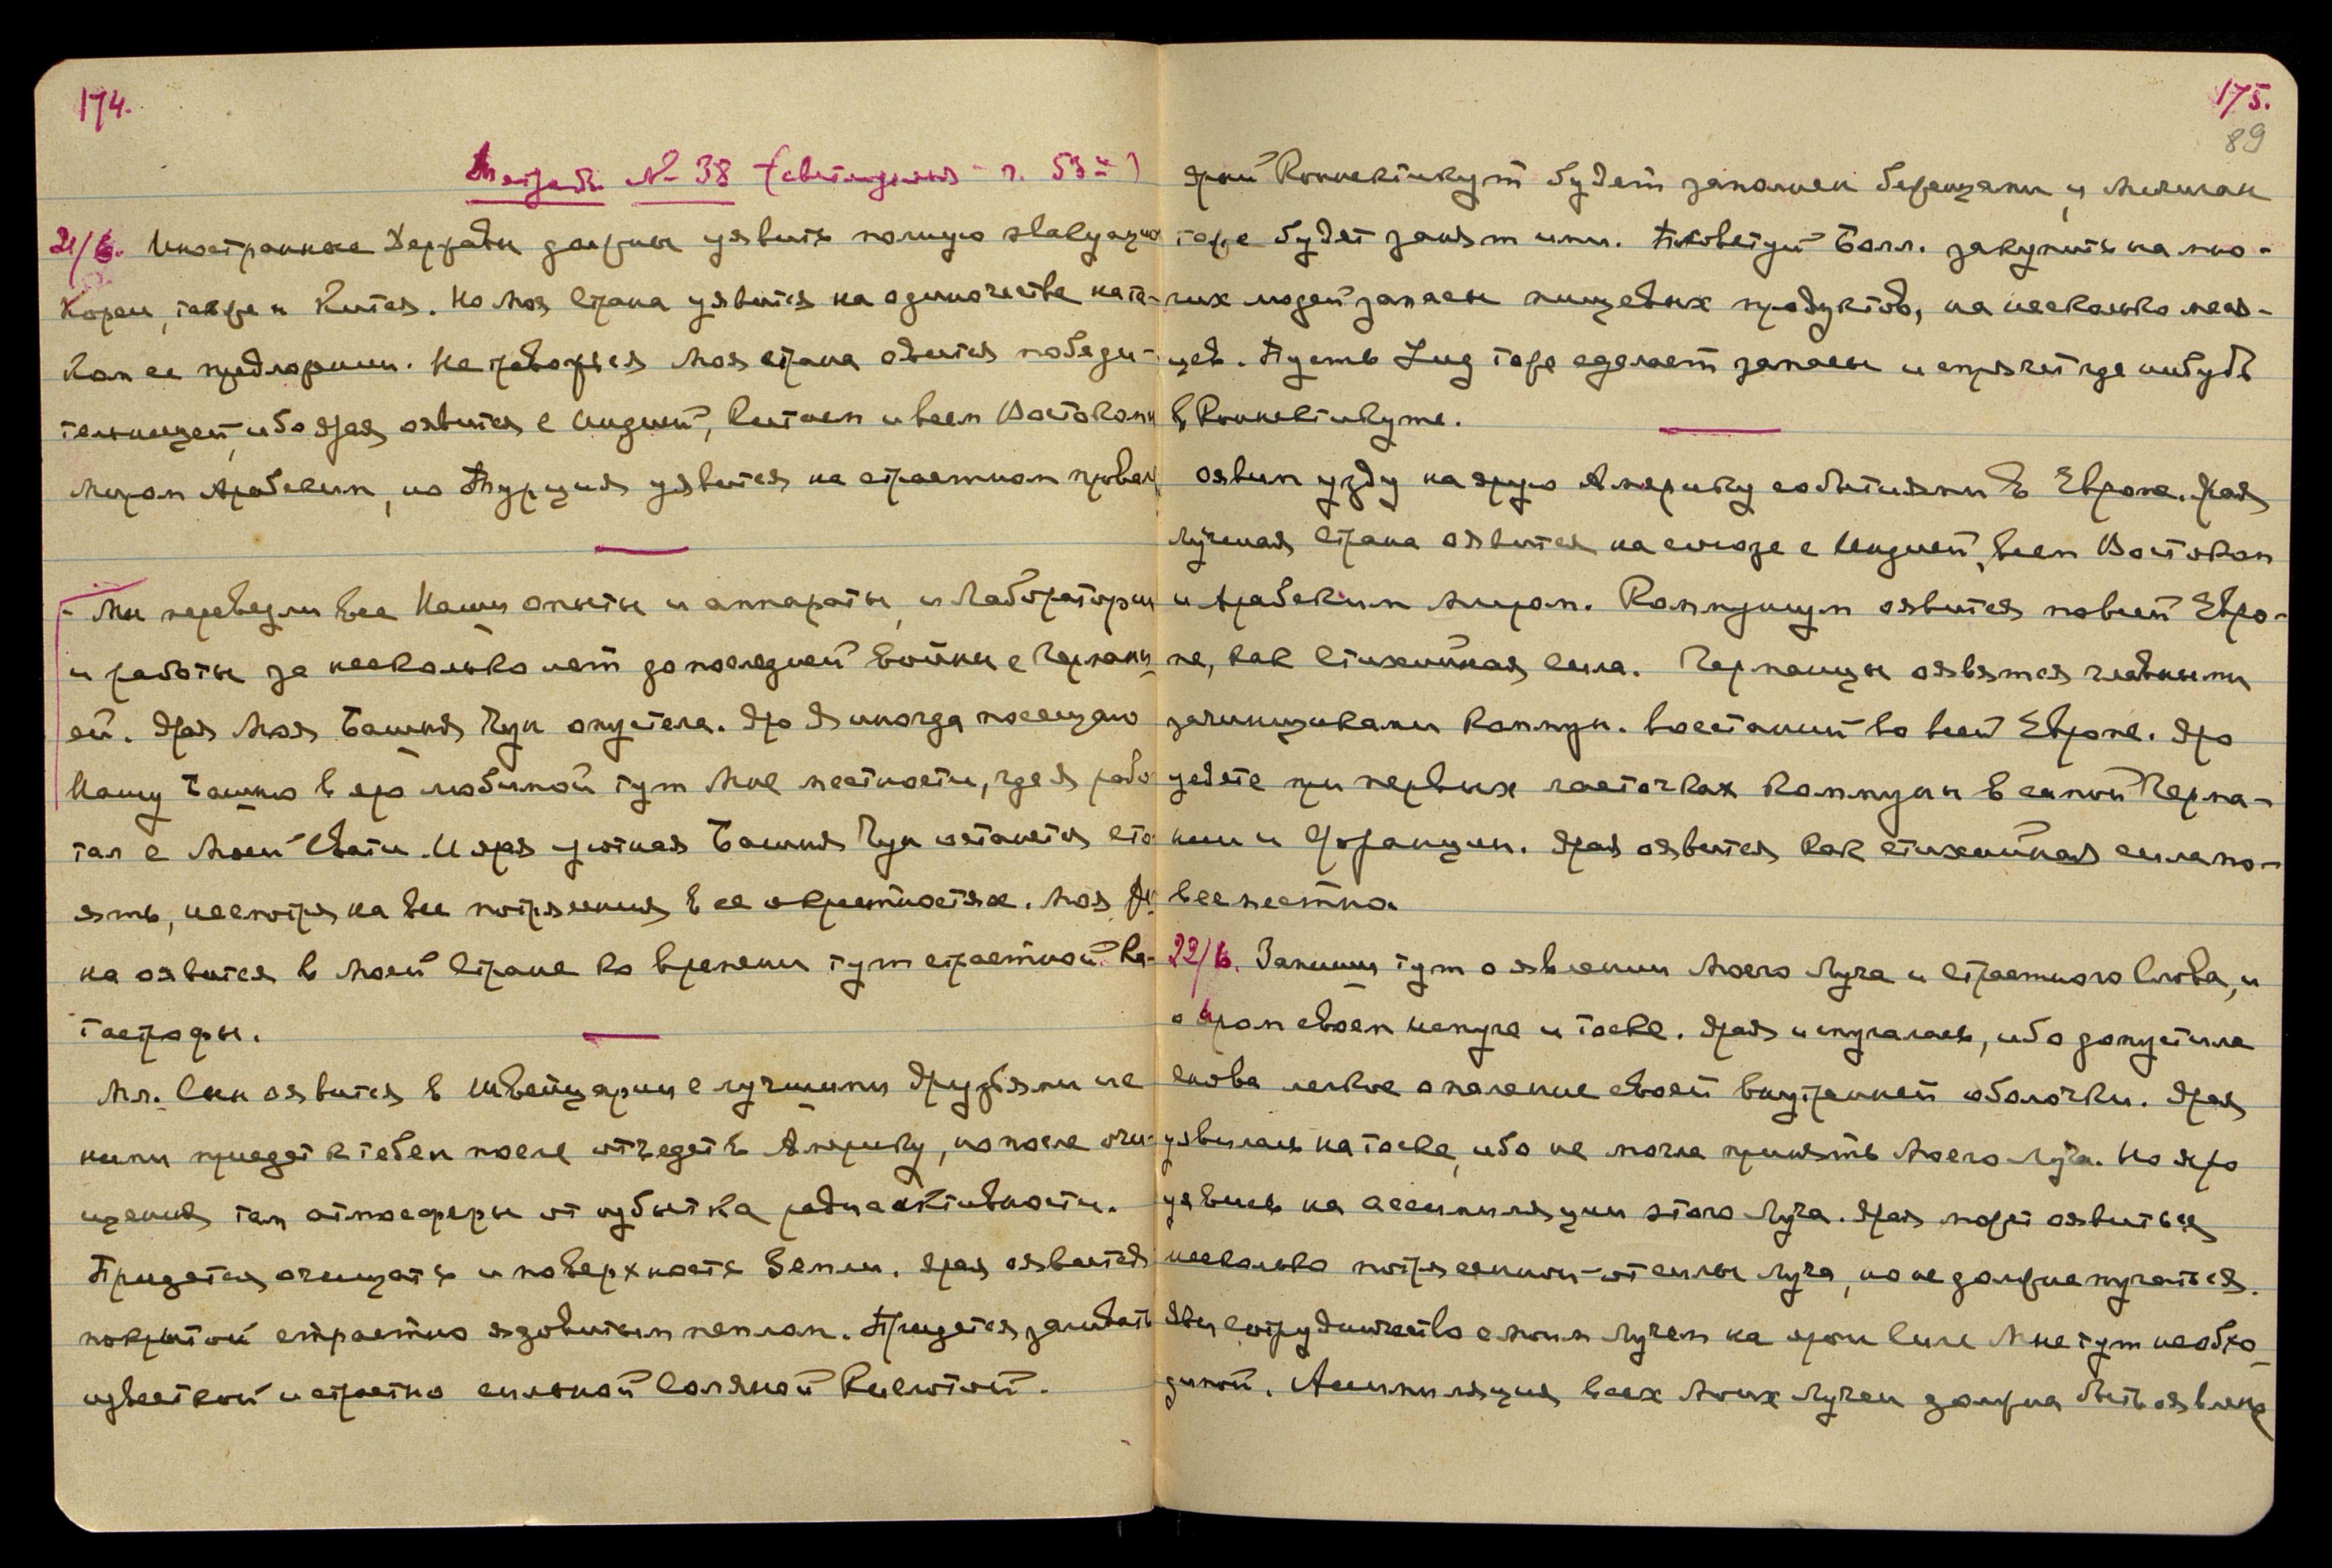 174.
Тетрадь № 38 (светлудная - г. 53й)
21/6. Иностранные Державы должны уявить полную эвакуацию
Кореи, также и Китая. Но Моя Страна уявится на одиночестве на та-
ком ее предложении. Не тревожься Моя страна явится победи-
тельницей, ибо ярая оявится с Индией, Китаем и всем Востоком и
Миром Арабским, но Турция уявится на страстном провале
- Мы перевезли все Наши опыты и аппараты, и Лаборатории
и работы за несколько лет до последней войны с Германи-
ей. Ярая Моя Башня Чун опустела. Яро Я иногда посещаю
Нашу Башню в яро любимой тут Мне местности, где я рабо-
тал с Моей Свати. И ярая уютная Башня Чун останется сто-
ять, несмотря на все потрясения в ее окрестностях. Моя
на оявится в Моей Стране ко времени тут страстной Ка-
тастрофы.
Мл. Сын оявится в Швейцарии с лучшими друзьями и с
ними приедет к тебе и после отъедет в Америку, но после очи-
щения там атмосферы от избытка радиоактивности.
Придется очищать и поверхность Земли. Ярая оявится
покрытой страстно ядовитым пеплом. Придется заливать
известкой и страстно сильной Соляной Кислотой.
175.
89
ярый Коннектикут будет заполнен беженцами, и Мичиган
тоже будет занят ими. Посоветуй Болл. закупить на мно-
гих людей запасы пищевых продуктов, на несколько меся-
цев. Пусть Зид тоже сделает запасы и спрячет где нибудь
в Коннектикуте.
Оявим узду на ярую Америку событиями в Европе. Ярая
лучшая Страна оявится на союзе с Индией, всем Востоком
и Арабским Миром. Коммунизм оявится по всей Евро-
пе, как Стихийная Сила. Германцы оявятся главными
зачинщиками Коммун. восстаний во всей Европе. Яро
уедете при первых ласточках Коммуны в самой Герма-
нии и Франции. Ярая оявится как стихийная сила по-
всеместно.
22/6. Запиши тут о явлении Моего Луча и Страстного Слова, и
о яром своем испуге и тоске. Ярая испугалась, ибо допустила
снова легкое опаление своей внутренней оболочки. Ярая
уявилась на тоске, ибо не могла принять Моего Луча. Но яро
уявись на ассимиляции этого Луча. Ярая может оявиться
несколько потрясенной от силы Луча, но не должна пугаться.
Яви сотрудничество с Моим Лучем на ярой Силе Мне тут необхо-
димой. Ассимиляция всех Моих Лучей должна быть оявлена